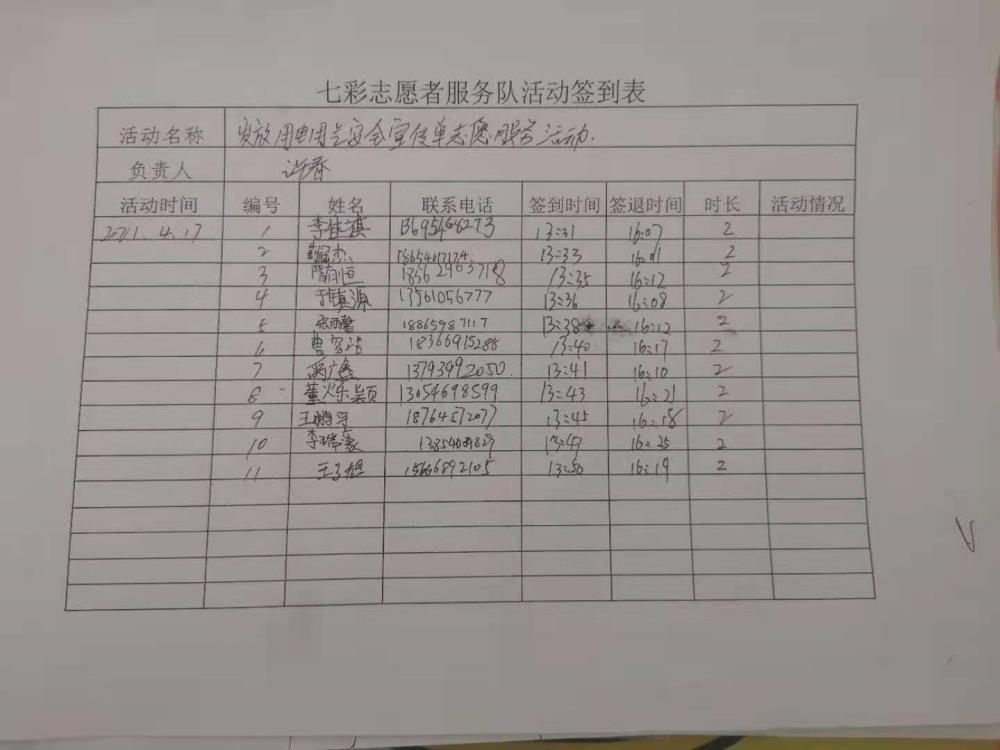 七彩志愿者服务队活动签到表
活动名称 发放用电用气安全宣传单志愿服务活动.
负责人 许春
活动时间 编号 姓名 联系电话 签到时间 签退时间 时长 活动情况
2021.4.17 1 李佳祺 13695468273 13:31 16:07 2
2 18654017174 13:33 16:01 2
3 隋恒 13:35 16:12 2
4 于镇源 13561056777 13:36 16:08 2
5 张雨馨 18865987117 13:38 16:12 2
6 曹 18366915288 13:40 16:17 2
7 13793992050. 13:41 16:10 2
8 董烁颖 13054698599 13:43 16:21 2
9 王鹏 18764572077 13:45 16:18 2
10 李瑞豪 13:47 16:25 2
11 王子 15666892105 13:50 16:19 2